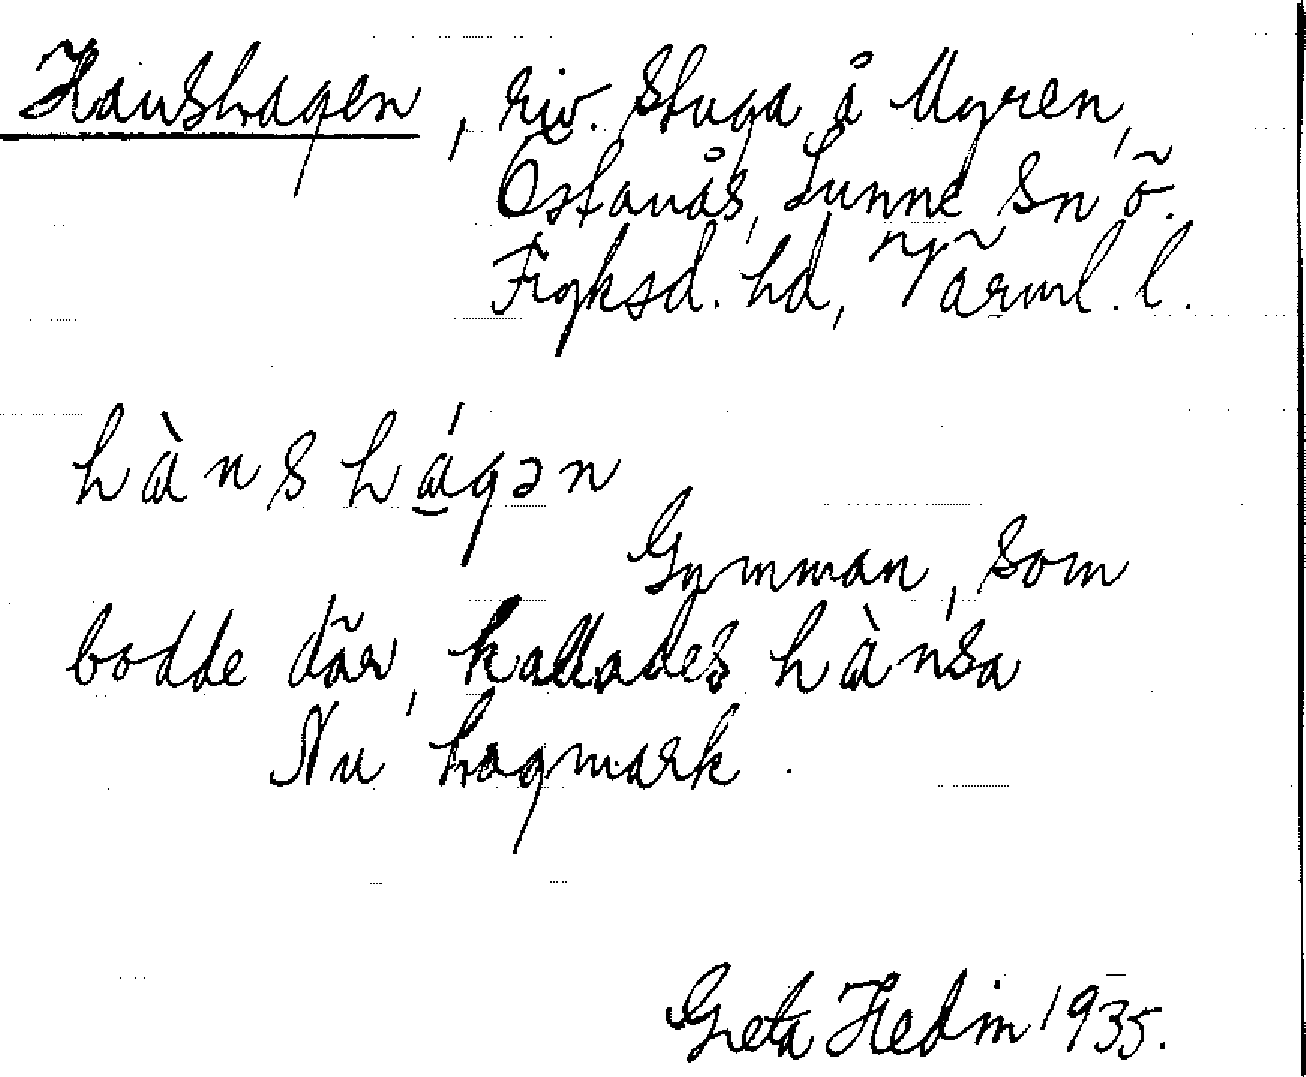 Hanshagen, riv. stuga å Myren,
Östanås, Sunne sn ö.
Fryksd. hd, Värml. l.
hὰnshágən
Gumman, som
bodde där, kallades hὰnsa
Nu hagmark.
Greta Hedin 1935.